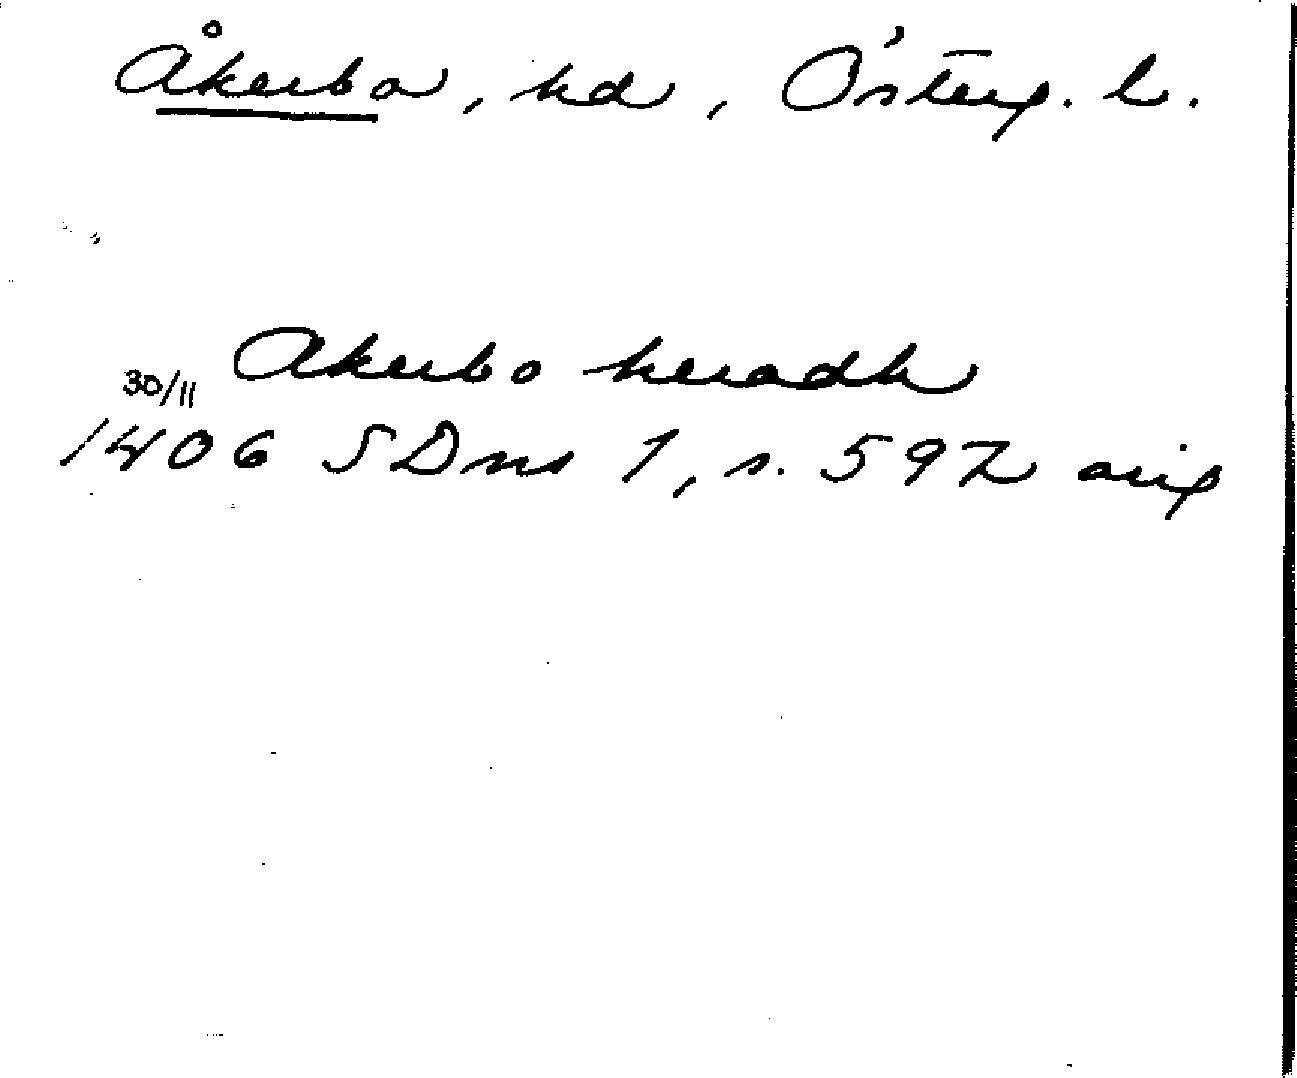 Åkerbo, hd, Österg. l.
Akerbo heradh
30/11
1406 SDns 1, s. 592 orig